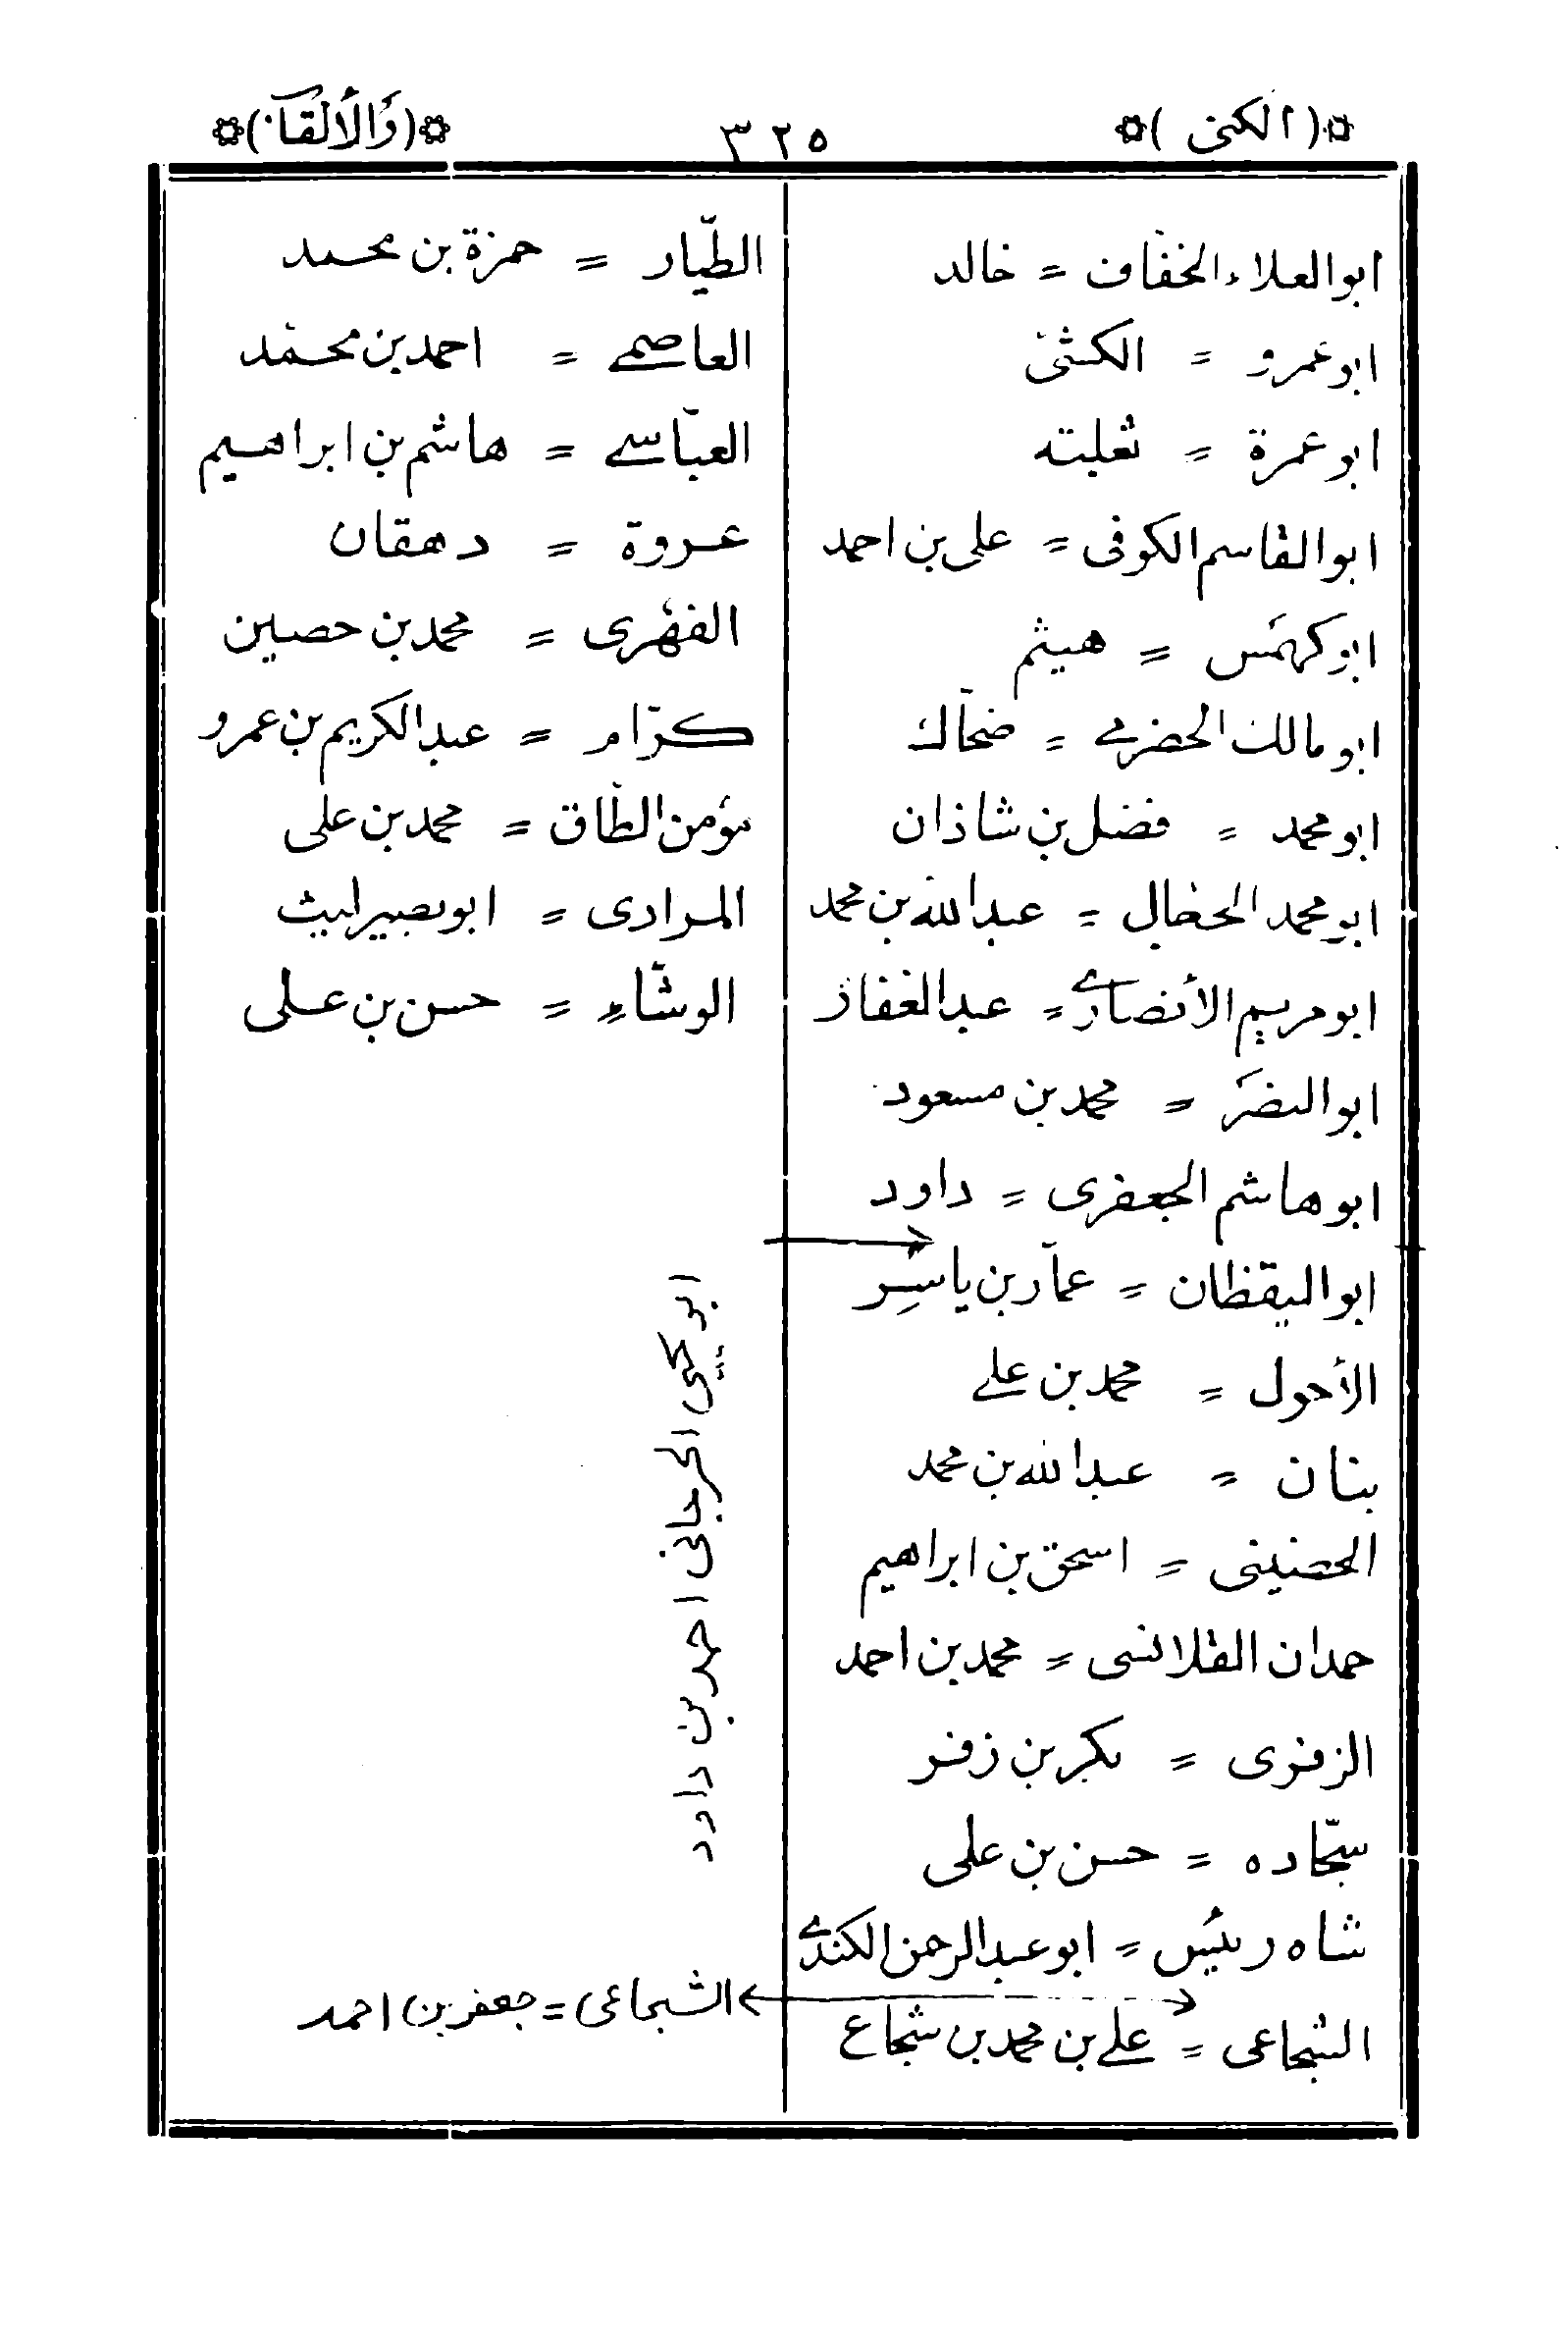 (الكنى)
٣٢٥
(والألقاب)
ابوالعلاء الخفاف = خالد
ابوعمرو = الكشّى
ابوعمرة = ثعلبته
ابوالقاسم الكوفى = على بن احمد
ابوكهمس = هيثم
ابومالك الحضرمى = ضحّاك
ابومحمد = فضل بن شاذان
ابومحمد الحجّال = عبدالله بن محمد
ابومريم الأنصارى = عبدالغفار
ابوالنضر = محمد بن مسعود
ابوهاشم الجعفرى = داود
ابواليقظان = عمّار بن ياسِر
الأحول = محمد بن على
بنان = عبدالله بن محمد
الحضينى = اسحق بن ابراهيم
حمدان القلانسى = محمد بن احمد
الزفرى = بكر بن زفر
سجّاده = حسن بن على
شاه رئيس = ابوعبدالرحمن الكندى
الشجاعى = على بن محمد بن شجاع
الطيّار = حمزة بن محمد
العاصمى = احمد بن محمّد
العبّاسى = هاشم بن ابراهيم
عروة = دهقان
الفهرى = محمد بن حصين
كرّام = عبدالكريم بن عمرو
مؤمن الطاق = محمد بن على
المرادى = ابوبصير ليث
الوشّاء = حسن بن على
ابويحيى الجرجانى احمد بن داود
الشجاعى = جعفر بن احمد